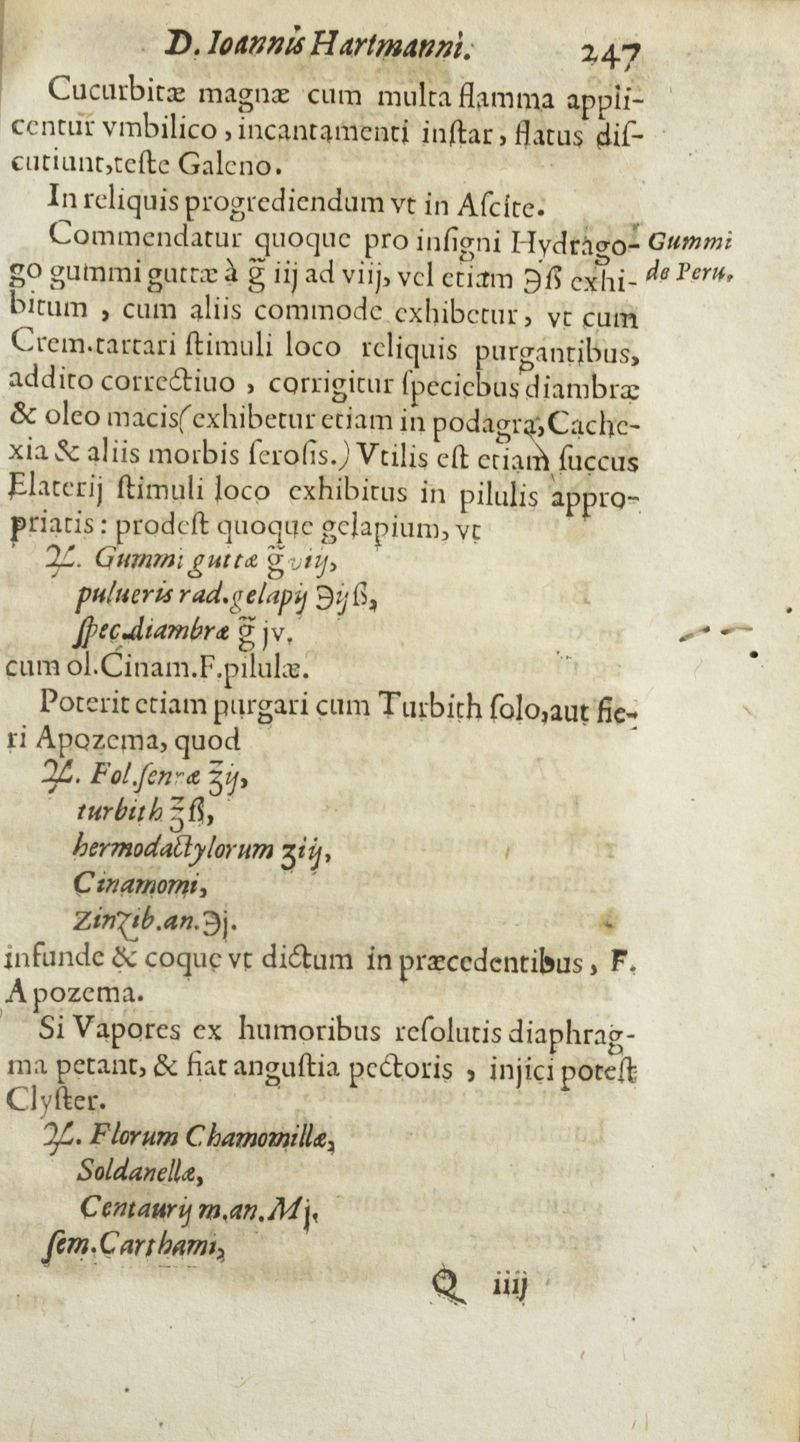 D. Ioannis Hartmanni. 247
Cucurbitæ magnæ cum multa flamma appli-
centur vmbilico, incantamenti inſtar, flatus diſ-
cutiunt, teſte Galeno.
In reliquis progrediendum vt in Aſcite.
Commendatur quoque pro inſigni Hydrago-
Gummi
go gummi guttæ à g̃ iij ad viij, vel etiam ℈ß exhi-
de Peru,
bitum, cum aliis commode exhibetur, vt cum
Crem.tartari ſtimuli loco reliquis purgantibus,
addito correctiuo, corrigitur ſpeciebus diambræ
& oleo macis(exhibetur etiam in podagra, Cache-
xia & aliis morbis ſeroſis.) Vtilis eſt etiam ſuccus
Elaterij ſtimuli loco exhibitus in pilulis appro-
priatis: prodeſt quoque gelapium, vt
♃. Gummi guttæ g̃ viij,
pulueris rad.gelapij ℈ijß,
ſpec.diambræ g̃ jv.
cum ol.Cinam.F.pilulæ.
Poterit etiam purgari cum Turbith ſolo, aut fie-
ri Apozema, quod
♃. Fol.ſennæ ℥ij,
turbith ℥ß,
hermodactylorum ʒiij,
Cinamomi,
Zinzib.an.℈j.
infunde & coque vt dictum in præcedentibus, F.
Apozema.
Si Vapores ex humoribus reſolutis diaphrag-
ma petant, & fiat anguſtia pectoris, injici poteſt
Clyſter.
♃. Florum Chamomillæ,
Soldanellæ,
Centaurij m.an.Mj,
ſem.Carthami,
Q iiij